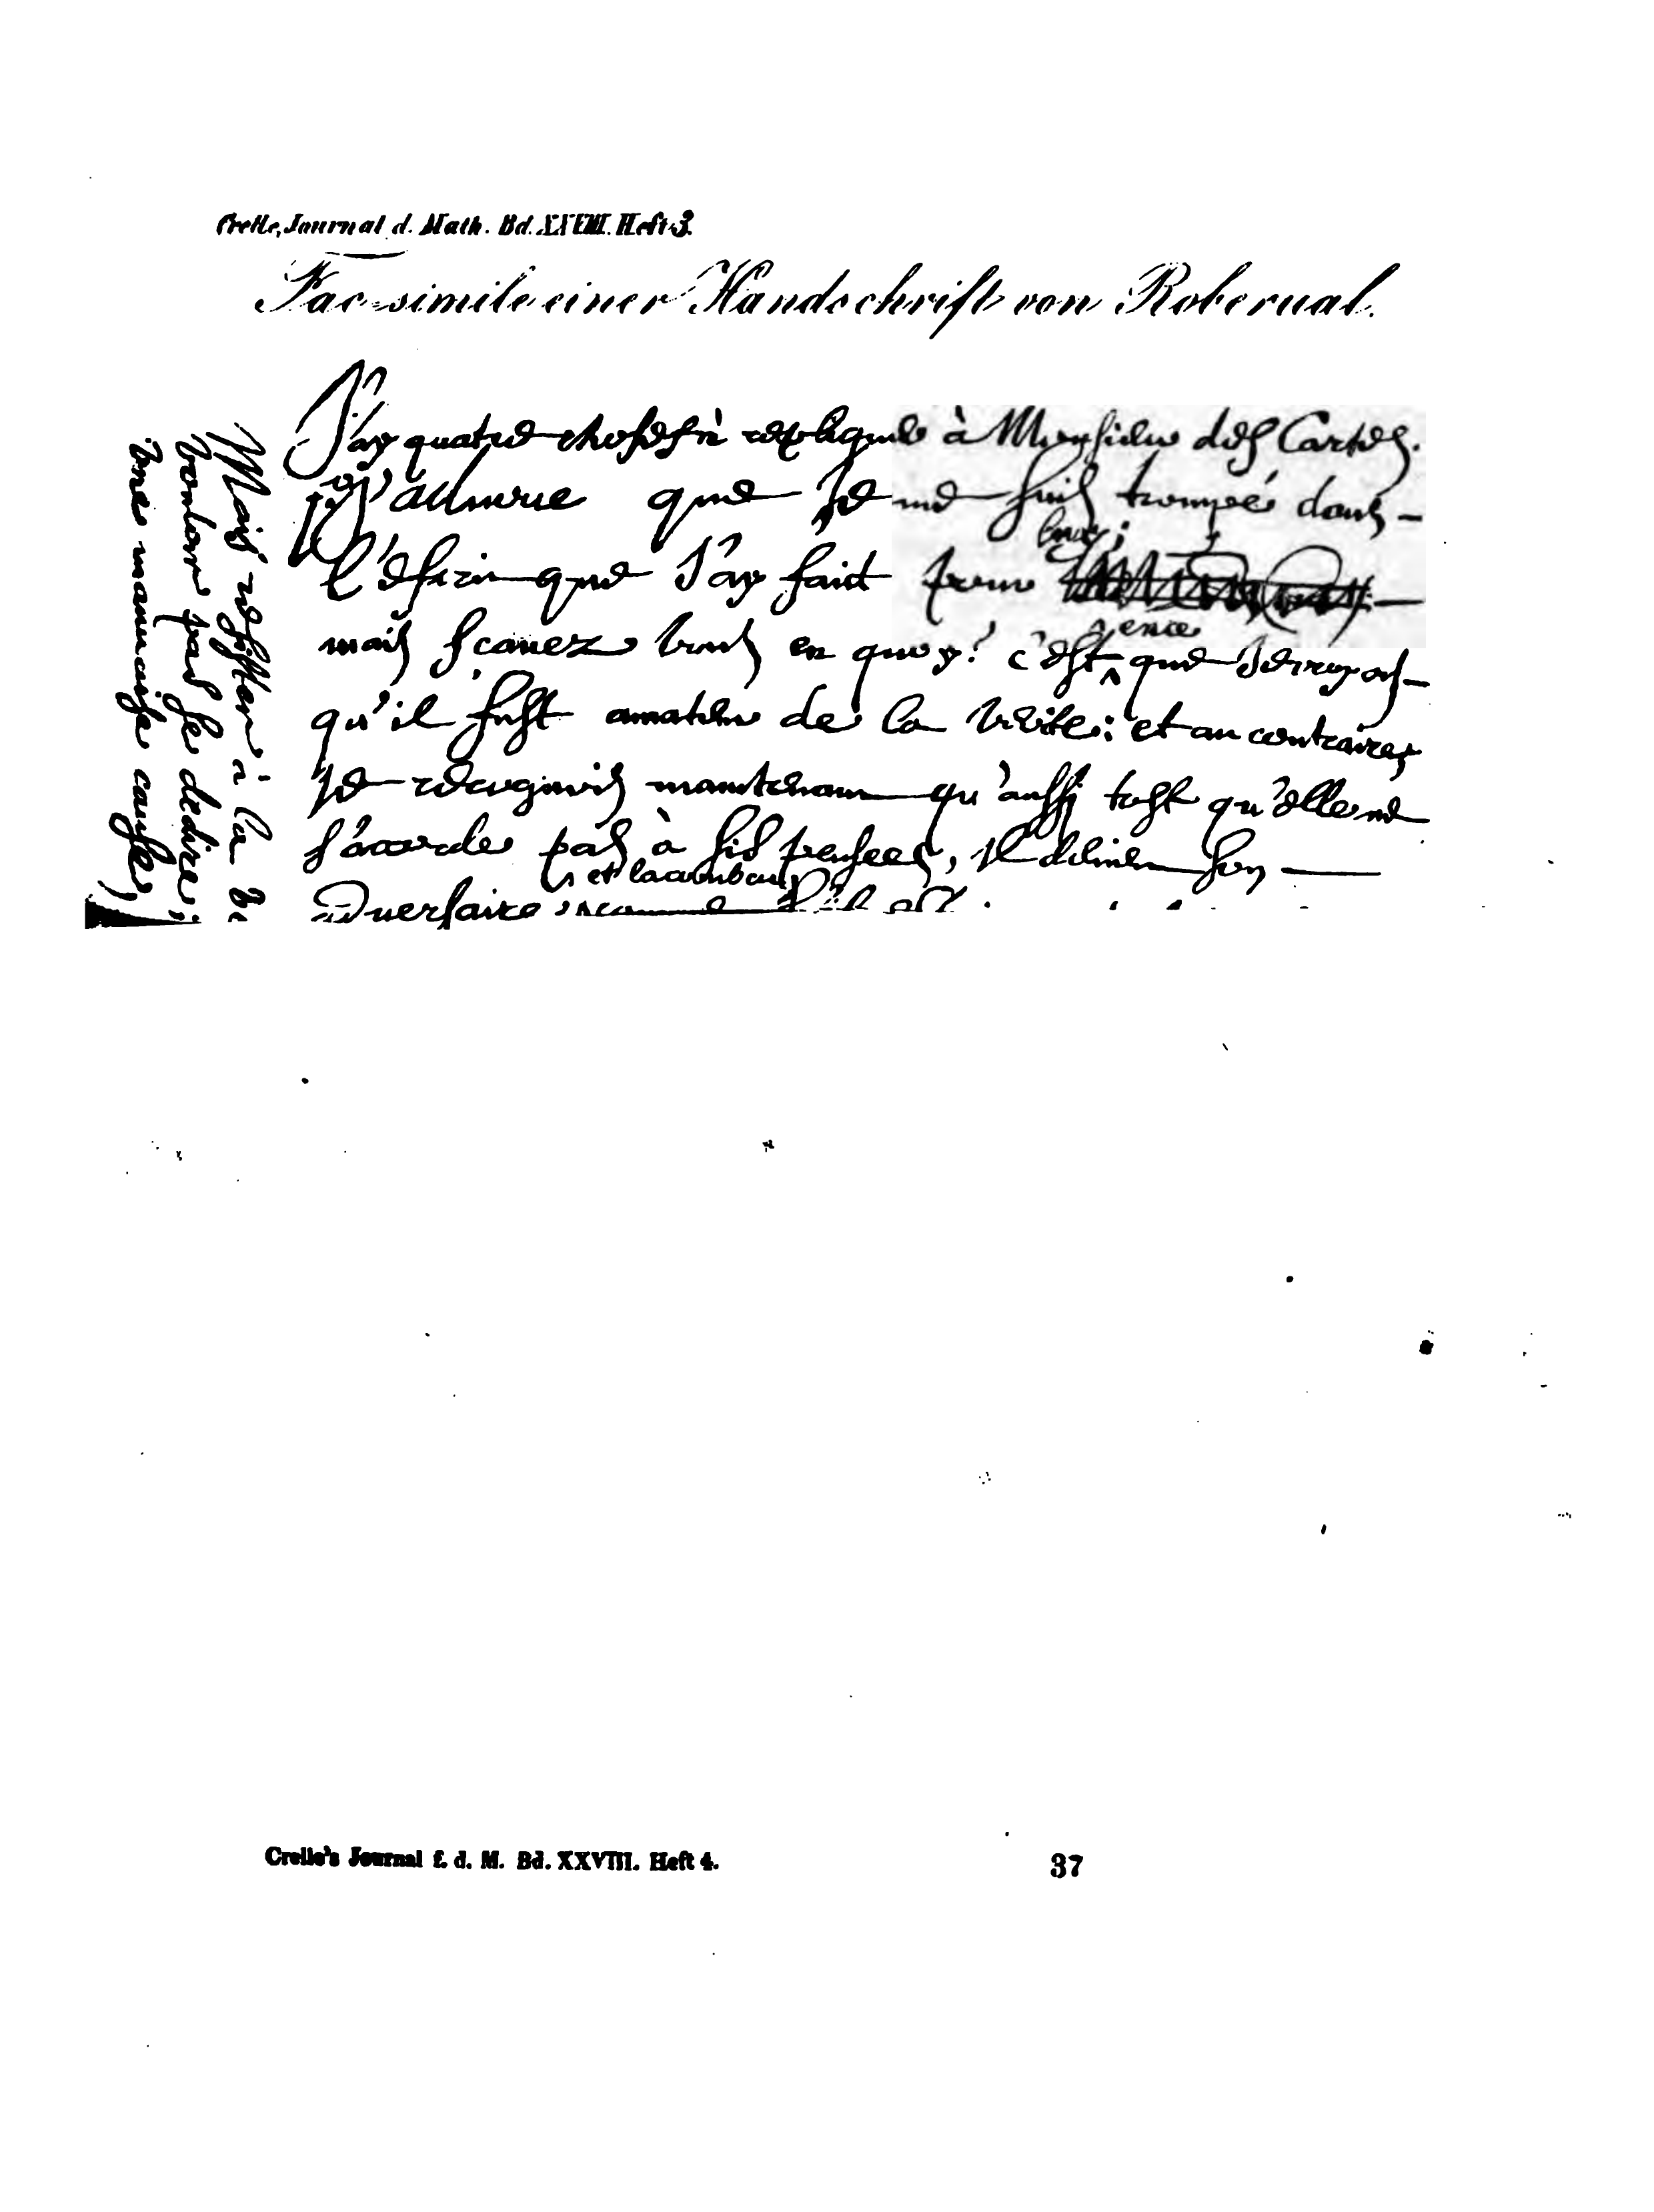 Crelle, Journal d. Math. Bd. XXVIII. Heft 3.
Fac-simile einer Handschrift von Roberval.
J'ay quatre choses à repliquer à Monsieur des Cartes.
J'aduoue que Je me suis trompé dans
luy;
l'escrit que J'ay faict pour
mais scauez vous en quoy? c'est que Je croyois
en ce
qu'il fust amateur de la verité: et au contraire,
Je recognois maintenant qu'aussi tost qu'elle ne
s'accorde pas à ses pensees, Il deuient son
et la combat
aduersaire
Mais resister à la
vouloir pas se dedire;
vne mauuaise cause,
Crelle's Journal f. d. M. Bd. XXVIII. Heft 4.
37